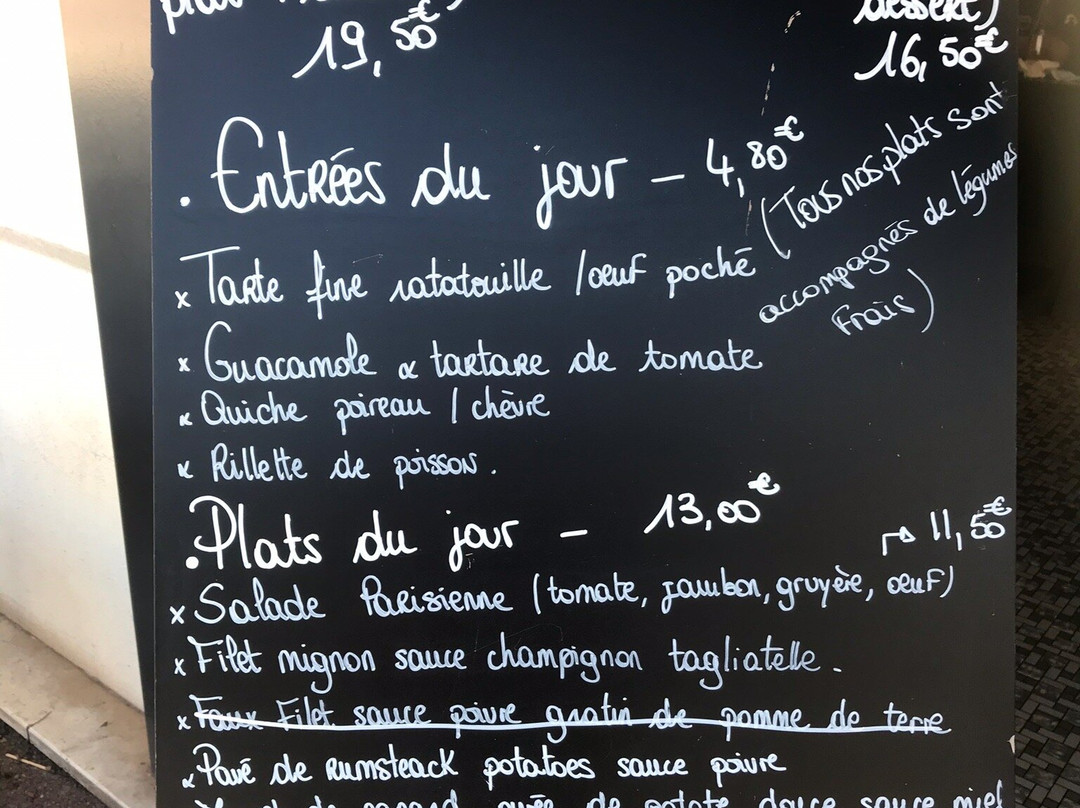 19,50€
dessert)
16,50€
. Entrées du jour - 4,80€
(Tous nos plats sont
accompagnés de légumes
Frais)
x Tarte fine ratatouille / oeuf poché
x Guacamole & tartare de tomate
x Quiche poireau / chèvre
x Rillette de poisson.
. Plats du jour - 13,00€
→ 11,50€
x Salade Parisienne (tomate, jambon, gruyère, oeuf)
x Filet mignon sauce champignon tagliatelle.
x Faux Filet sauce poivre gratin de pomme de terre
x Pavé de Rumsteack potatoes sauce poivre
de canard purée de patate douce sauce miel